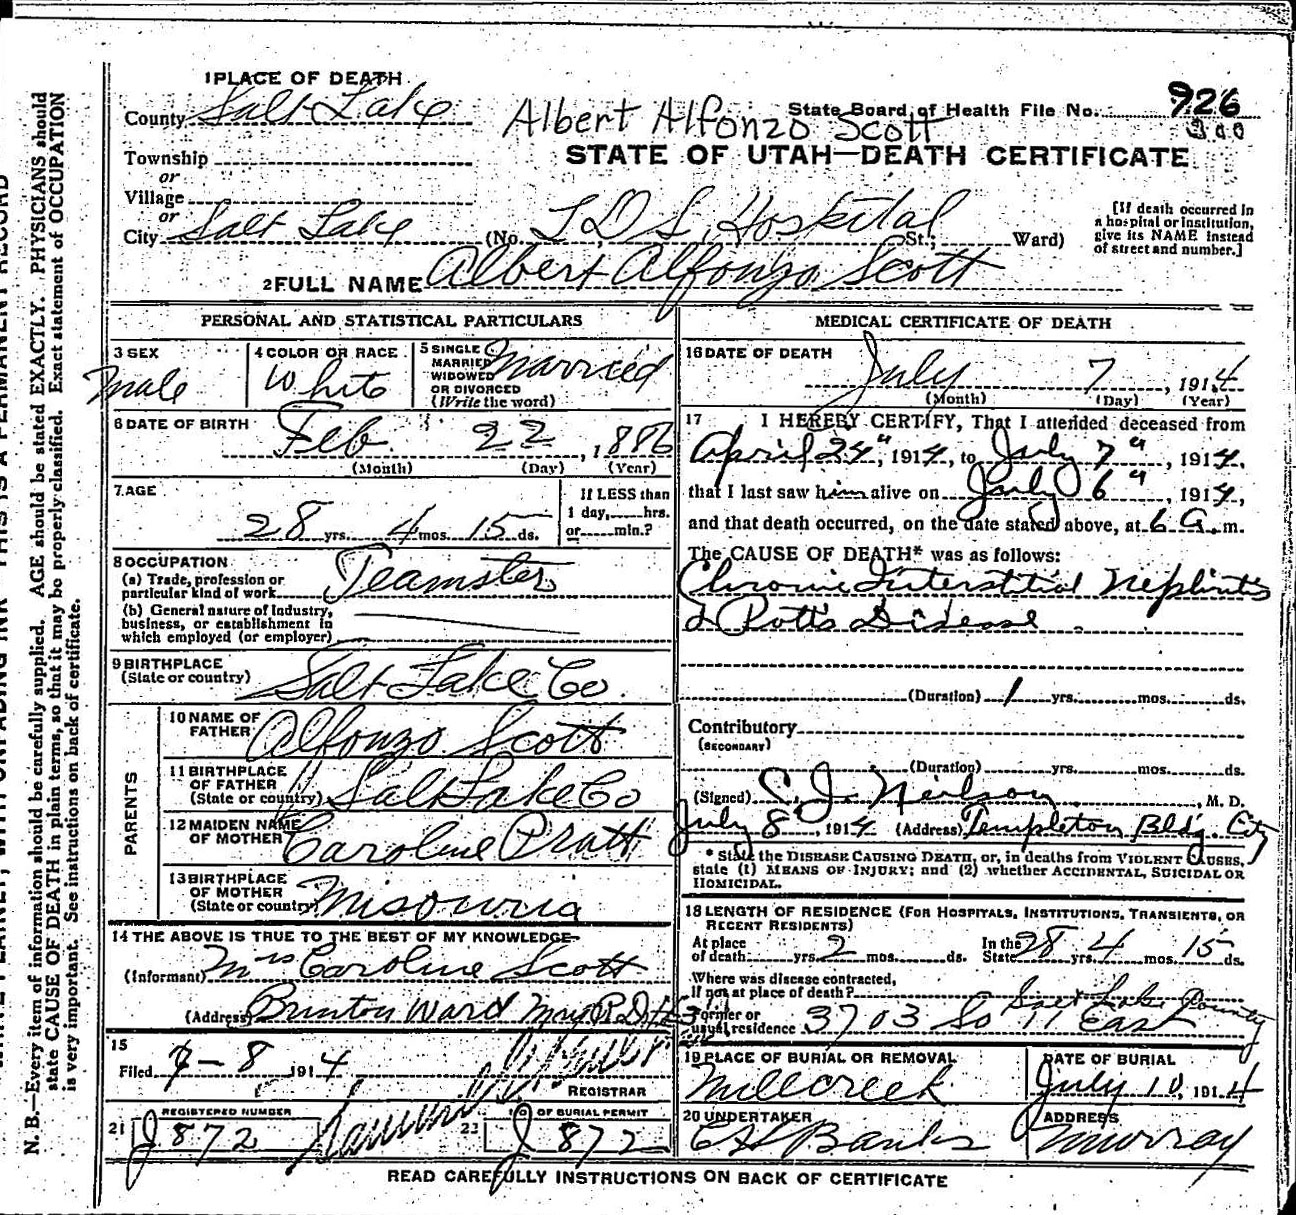 1 PLACE OF DEATH
County Salt Lake
Albert Alfonzo Scott
State Board of Health File No. 926
300
Township
or
Village
or
City Salt Lake
STATE OF UTAH—DEATH CERTIFICATE
(No. L D S Hospital St.; Ward)
[If death occurred in
a hospital or institution,
give its NAME instead
of street and number.]
2 FULL NAME Albert Alfonzo Scott
PERSONAL AND STATISTICAL PARTICULARS
3 SEX
Male
4 COLOR OR RACE
White
5 SINGLE
MARRIED
WIDOWED
OR DIVORCED
(Write the word)
Married
6 DATE OF BIRTH
Feb 22, 1886
(Month) (Day) (Year)
7. AGE
28 yrs. 4 mos. 15 ds.
If LESS than
1 day, hrs.
or min.?
8 OCCUPATION
(a) Trade, profession or
particular kind of work Teamster
(b) General nature of industry,
business, or establishment in
which employed (or employer)
9 BIRTHPLACE
(State or country) Salt Lake Co.
PARENTS
10 NAME OF
FATHER Alfonzo Scott
11 BIRTHPLACE
OF FATHER
(State or country) Salt Lake Co
12 MAIDEN NAME
OF MOTHER Caroline Pratt
13 BIRTHPLACE
OF MOTHER
(State or country) Misouria
14 THE ABOVE IS TRUE TO THE BEST OF MY KNOWLEDGE
(Informant) Mrs Caroline Scott
(Address) Brinton Ward Mury R.D. #3
15
Filed 7-8 1914
REGISTRAR
REGISTERED NUMBER
21 J 872
23 OF BURIAL PERMIT
J 872
MEDICAL CERTIFICATE OF DEATH
16 DATE OF DEATH
July 7, 1914
(Month) (Day) (Year)
17 I HEREBY CERTIFY, That I attended deceased from
April 24", 1914, to July 7", 1914,
that I last saw him alive on July 6", 1914,
and that death occurred, on the date stated above, at 6 A. m.
The CAUSE OF DEATH* was as follows:
Chronic Interstitial Nephritis
& Potts Disease
(Duration) 1 yrs. mos. ds.
Contributory
(SECONDARY)
(Duration) yrs. mos. ds.
(Signed) C. J. Neilson, M. D.
July 8, 1914 (Address) Templeton Bldg. City
* State the DISEASE CAUSING DEATH, or, in deaths from VIOLENT CAUSES,
state (1) MEANS OF INJURY; and (2) whether ACCIDENTAL, SUICIDAL OR
HOMICIDAL.
18 LENGTH OF RESIDENCE (FOR HOSPITALS, INSTITUTIONS, TRANSIENTS, OR
RECENT RESIDENTS)
At place
of death yrs. 2 mos. ds.
In the
State 28 yrs. 4 mos. 15 ds.
Where was disease contracted,
If not at place of death? Salt Lake County
Former or
usual residence 3703 So 11 East
19 PLACE OF BURIAL OR REMOVAL
Millcreek
DATE OF BURIAL
July 10, 1914
20 UNDERTAKER
Banks
ADDRESS
Murray
READ CAREFULLY INSTRUCTIONS ON BACK OF CERTIFICATE
N. B.—Every item of information should be carefully supplied. AGE should be stated EXACTLY. PHYSICIANS should
state CAUSE OF DEATH in plain terms, so that it may be properly classified. Exact statement of OCCUPATION
is very important. See instructions on back of certificate.